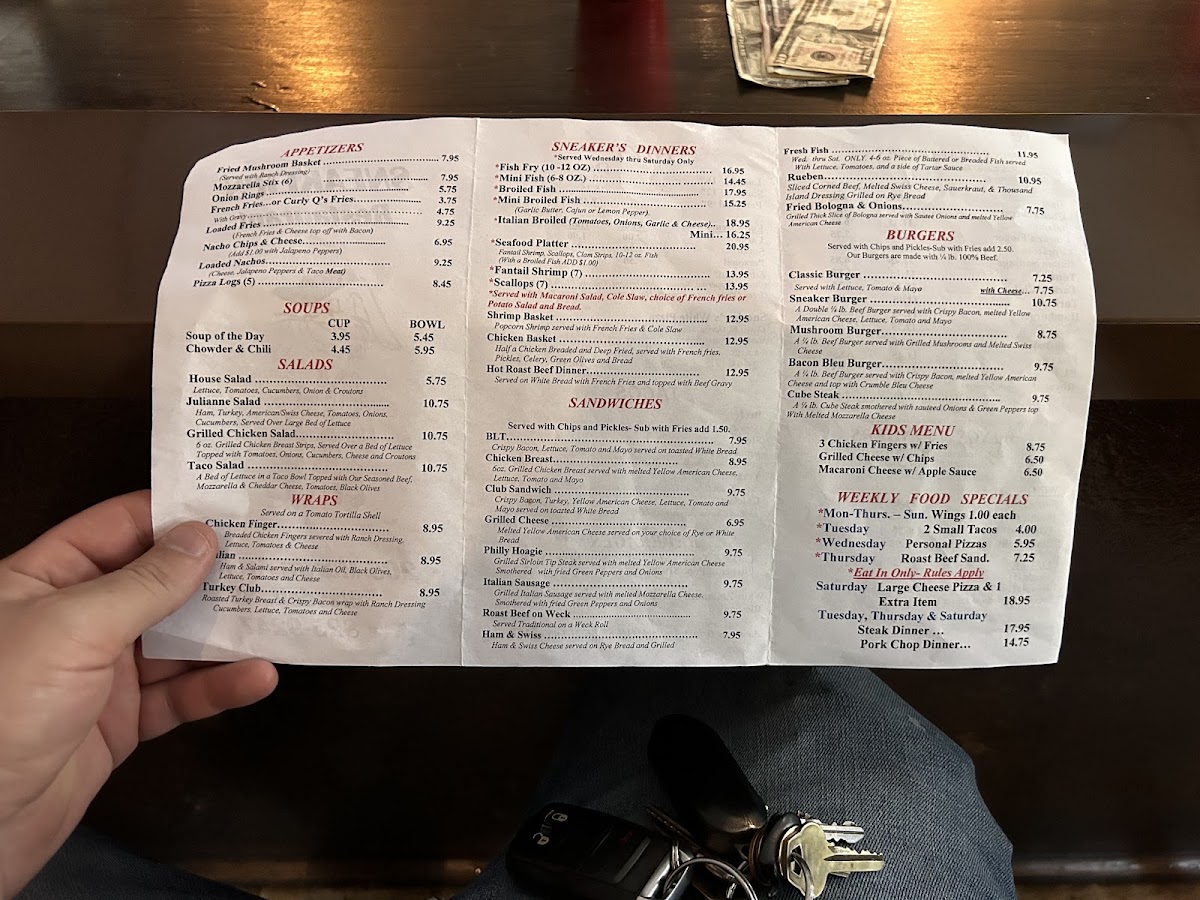 APPETIZERS
Fried Mushroom Basket 7.95
(Served with Ranch Dressing)
Mozzarella Stix (6) 7.95
Onion Rings 5.75
French Fries...or Curly Q's Fries 3.75
With Gravy 4.75
Loaded Fries 9.25
(French Fries & Cheese top off with Bacon)
Nacho Chips & Cheese 6.95
(Add $1.00 with Jalapeno Peppers)
Loaded Nachos 9.25
(Cheese, Jalapeno Peppers & Taco Meat)
Pizza Logs (5) 8.45
SOUPS
CUP BOWL
Soup of the Day 3.95 5.45
Chowder & Chili 4.45 5.95
SALADS
House Salad 5.75
Lettuce, Tomatoes, Cucumbers, Onion & Croutons
Julianne Salad 10.75
Ham, Turkey, American/Swiss Cheese, Tomatoes, Onions,
Cucumbers, Served Over Large Bed of Lettuce
Grilled Chicken Salad 10.75
6 oz. Grilled Chicken Breast Strips, Served Over a Bed of Lettuce
Topped with Tomatoes, Onions, Cucumbers, Cheese and Croutons
Taco Salad 10.75
A Bed of Lettuce in a Taco Bowl Topped with Our Seasoned Beef,
Mozzarella & Cheddar Cheese, Tomatoes, Black Olives
WRAPS
Served on a Tomato Tortilla Shell
Chicken Finger 8.95
Breaded Chicken Fingers severed with Ranch Dressing,
Lettuce, Tomatoes & Cheese
lian 8.95
Ham & Salami served with Italian Oil, Black Olives,
Lettuce, Tomatoes and Cheese
Turkey Club 8.95
Roasted Turkey Breast & Crispy Bacon wrap with Ranch Dressing
Cucumbers, Lettuce, Tomatoes and Cheese
SNEAKER'S DINNERS
*Served Wednesday thru Saturday Only
*Fish Fry (10 -12 OZ) 16.95
*Mini Fish (6-8 OZ.) 14.45
*Broiled Fish 17.95
*Mini Broiled Fish 15.25
(Garlic Butter, Cajun or Lemon Pepper)
*Italian Broiled (Tomatoes, Onions, Garlic & Cheese).. 18.95
Mini... 16.25
*Seafood Platter 20.95
Fantail Shrimp, Scallops, Clam Strips, 10-12 oz. Fish
(With a Broiled Fish ADD $1.00)
*Fantail Shrimp (7) 13.95
*Scallops (7) 13.95
*Served with Macaroni Salad, Cole Slaw, choice of French fries or
Potato Salad and Bread.
Shrimp Basket 12.95
Popcorn Shrimp served with French Fries & Cole Slaw
Chicken Basket 12.95
Half a Chicken Breaded and Deep Fried, served with French fries,
Pickles, Celery, Green Olives and Bread
Hot Roast Beef Dinner 12.95
Served on White Bread with French Fries and topped with Beef Gravy
SANDWICHES
Served with Chips and Pickles- Sub with Fries add 1.50.
BLT 7.95
Crispy Bacon, Lettuce, Tomato and Mayo served on toasted White Bread
Chicken Breast 8.95
6oz. Grilled Chicken Breast served with melted Yellow American Cheese,
Lettuce, Tomato and Mayo
Club Sandwich 9.75
Crispy Bacon, Turkey, Yellow American Cheese, Lettuce, Tomato and
Mayo served on toasted White Bread
Grilled Cheese 6.95
Melted Yellow American Cheese served on your choice of Rye or White
Bread
Philly Hoagie 9.75
Grilled Sirloin Tip Steak served with melted Yellow American Cheese
Smothered with fried Green Peppers and Onions
Italian Sausage 9.75
Grilled Italian Sausage served with melted Mozzarella Cheese,
Smothered with fried Green Peppers and Onions
Roast Beef on Weck 9.75
Served Traditional on a Weck Roll
Ham & Swiss 7.95
Ham & Swiss Cheese served on Rye Bread and Grilled
Fresh Fish 11.95
Wed. thru Sat. ONLY. 4-6 oz. Piece of Battered or Breaded Fish served
With Lettuce, Tomatoes, and a side of Tartar Sauce
Rueben 10.95
Sliced Corned Beef, Melted Swiss Cheese, Sauerkraut, & Thousand
Island Dressing Grilled on Rye Bread
Fried Bologna & Onions 7.75
Grilled Thick Slice of Bologna served with Sautee Onions and melted Yellow
American Cheese
BURGERS
Served with Chips and Pickles-Sub with Fries add 2.50.
Our Burgers are made with ¼ lb. 100% Beef.
Classic Burger 7.25
Served with Lettuce, Tomato & Mayo with Cheese... 7.75
Sneaker Burger 10.75
A Double ¼ lb. Beef Burger served with Crispy Bacon, melted Yellow
American Cheese, Lettuce, Tomato and Mayo
Mushroom Burger 8.75
A ¼ lb. Beef Burger served with Grilled Mushrooms and Melted Swiss
Cheese
Bacon Bleu Burger 9.75
A ¼ lb. Beef Burger served with Crispy Bacon, melted Yellow American
Cheese and top with Crumble Bleu Cheese
Cube Steak 9.75
A ¼ lb. Cube Steak smothered with sauteed Onions & Green Peppers top
With Melted Mozzarella Cheese
KIDS MENU
3 Chicken Fingers w/ Fries 8.75
Grilled Cheese w/ Chips 6.50
Macaroni Cheese w/ Apple Sauce 6.50
WEEKLY FOOD SPECIALS
*Mon-Thurs. – Sun. Wings 1.00 each
*Tuesday 2 Small Tacos 4.00
*Wednesday Personal Pizzas 5.95
*Thursday Roast Beef Sand. 7.25
*Eat In Only- Rules Apply
Saturday Large Cheese Pizza & 1
Extra Item 18.95
Tuesday, Thursday & Saturday
Steak Dinner ... 17.95
Pork Chop Dinner... 14.75